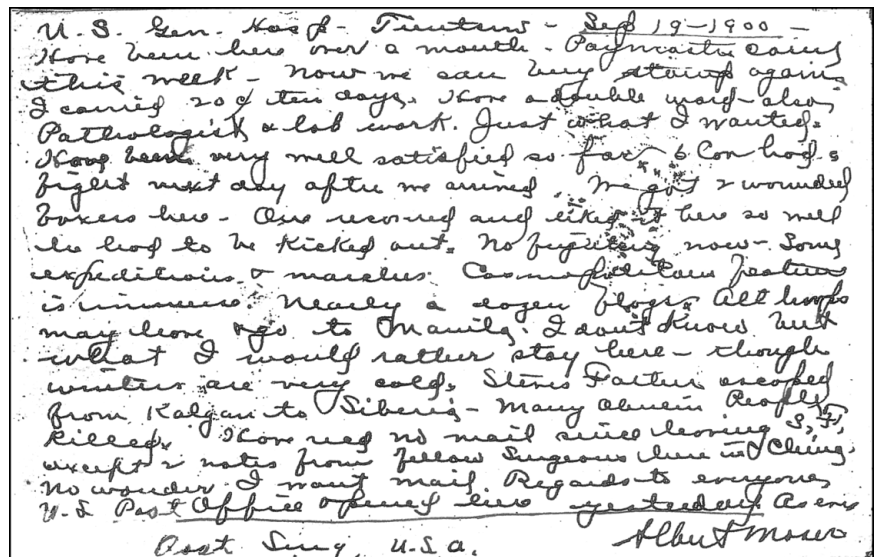 U. S. Gen. Hosp - Tientsin - Sep 19-1900 -
Have been here over a month - Paymaster came
this week - Now we can buy stamps again
I carried 20¢ ten days. Have a double ward - also
Pathologist & lab work. Just what I wanted.
Have been very well satisfied so far 6 Cav had a
fight next day after we arrived. We got 2 wounded
boxers here - One recovered and liked it here so well
he had to be kicked out. No fighting now - Some
expeditions & marches. Cosmopolitan feature
is immense. Nearly a dozen flags. All troops
may leave & go to Manila. I don't know but
what I would rather stay here - though
winters are very cold. Father escaped
from Kalgan to Siberia - Many People
killed. Have rec'd no mail since leaving S.F.,
except 2 notes from fellow Surgeons here in China.
No wonder I want mail. Regards to everyone
U.S. Post Office opened here yesterday As ever
Albert Moser
Asst Surg. U.S.A.